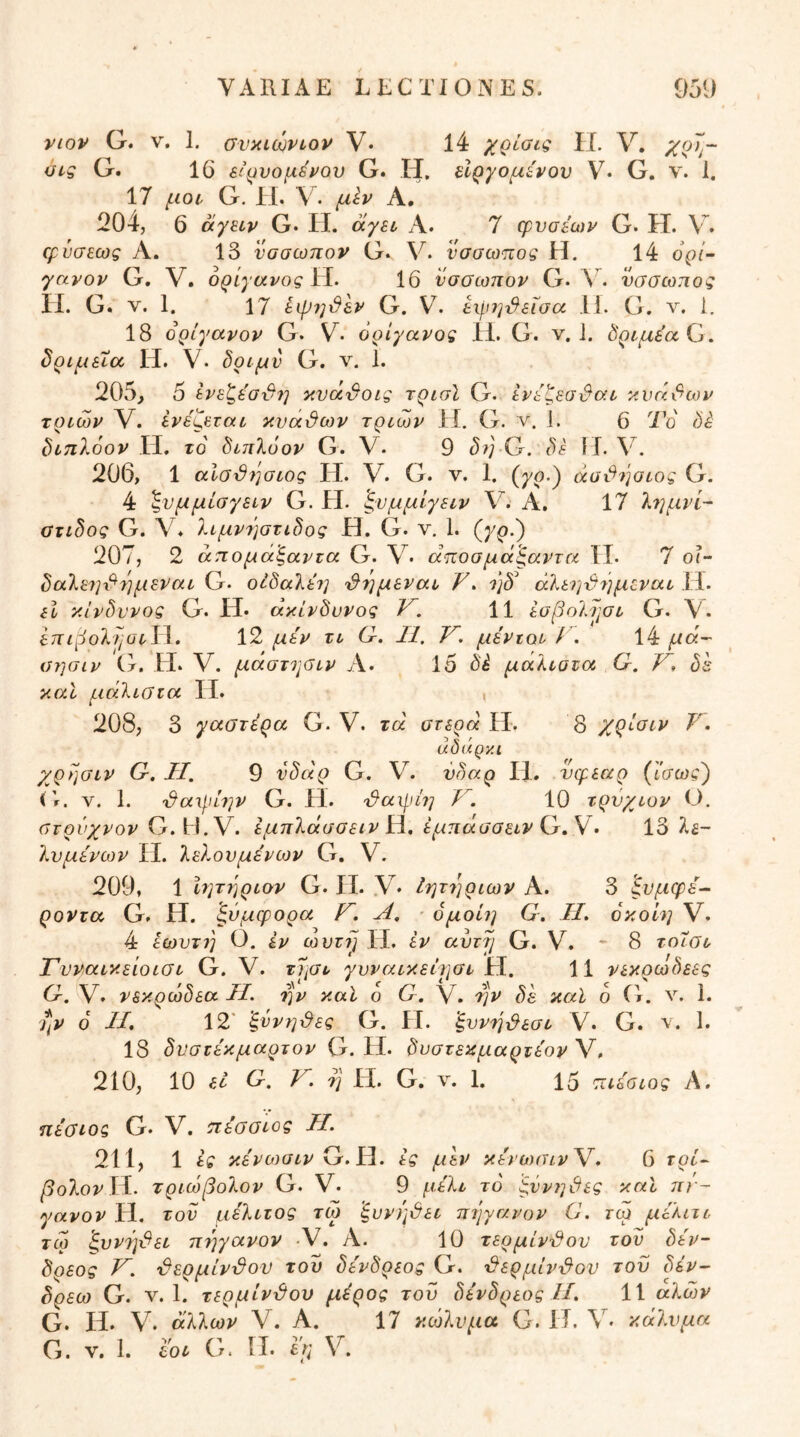 VARIAE LECTIONES. 959
νιον G. v. 1. συκιώνιον V. 14 χρίσις H. V. χρῆ-
σις G. 16 εἰρυομένου G. H. εἰργομένου V. G. v. 1.
17 μοι G. H. V. μὲν A.
204, 6 ἄγειν G. H. ἄγει A. 7 φυσέων G. H. V.
φύσεως A. 13 ὕσσωπον G. V. ὕσσωπος H. 14 ὀρί-
γανον G. V. ὀρίγανος H. 16 ὕσσωπον G. V. ὕσσωπος
H. G. v. 1. 17 ἑψηθὲν G. V. ἑψηθεῖσα H. G. v. 1.
18 ὀρίγανον G. V. ὀρίγανος H. G. v. 1. δριμέα G.
δριμεῖα H. V. δριμύ G. v. 1.
205, 5 ἐνεζέσθη κυάθοις τρισὶ G. ἐνέζεσθαι κυάθων
τριῶν V. ἐνέζεται κυάθων τριῶν H. G. v. 1. 6 Τὸ δὲ
διπλόον H. τὸ διπλόον G. V. 9 δὴ G. δὲ H. V.
206, 1 αἰσθήσιος H. V. G. v. 1. (γρ.) ἀσθήσιος G.
4 ξυμμίσγειν G. H. ξυμμίγειν V. A. 17 λημνί-
στιδος G. V. λιμνήστιδος H. G. v. 1. (γρ.)
207, 2 ἀπομάξαντα G. V. ἀποσμάξαντα H. 7 οἰ-
δαλεηθήμεναι G. οἰδαλέη θήμεναι V. ἠδ᾽ ἀλεηθήμεναι H.
εἰ κίνδυνος G. H. ἀκίνδυνος V. 11 ἐσβολῇσι G. V.
ἐπιβολῇσι H. 12 μέν τι G. H. V. μέντοι V. 14 μά-
σησιν G. H. V. μάστησιν A. 15 δὲ μάλιστα G. V. δὲ
καὶ μάλιστα H.
208, 3 γαστέρα G. V. τὰ στερεὰ H. 8 χρίσιν V.
ἀδάρκι
χρῆσιν G. H. 9 ὑδὰρ G. V. ὕδαρ H. νύφεαρ (ἴσως)
G. v. 1. θαψίην G. H. θαψίη V. 10 τρύχιον O.
στρύχνον G. H. V. ἐμπλάσσειν H. ἐμπάσσειν G. V. 13 λε-
λυμένων H. λελουμένων G. V.
209, 1 ἰητήριον G. H. V. ἰητήριων A. 3 ξυμφέ-
ροντα G. H. ξύμφορα V. A. ὁμοίη G. H. ὁκοίη V.
4 ἑωυτῆ O. ἐν ὡυτῇ H. ἐν αὐτῇ G. V. 8 τοῖσι
Γυναικείοισι G. V. τῇσι γυναικείῃσι H. 11 νεκρώδεες
G. V. νεκρώδεα H. ἢν καὶ ὁ G. V. ἢν δὲ καὶ ὁ G. v. 1.
ἢν ὁ H. 12 ξύνηθες G. H. ξυνήθεσι V. G. v. 1.
13 δυστέκμαρτον G. H. δυστεκμαρτέον V.
210, 10 εἰ G. V. ἢ H. G. v. 1. 15 πιέσιος A.
πέσιος G. V. πέσσιος H.
211, 1 ἐς κένωσιν G. H. ἐς μὲν κένωσιν V. 6 τρί-
βολον H. τριώβολον G. V. 9 μέλι τὸ ξύνηθες καὶ πή-
γανον H. τοῦ μέλιτος τῷ ξυνήθει πήγανον G. τῷ μέλιτι
τῷ ξυνήθει πήγανον V. A. 10 τερμίνθου τοῦ δέν-
δρεος V. θερμίνθου τοῦ δένδρεος G. θερμίνθου τοῦ δέν-
δρεω G. v. 1. τερμίνθου μέρος τοῦ δένδρεος H. 11 ἁλῶν
G. H. V. ἄλλων V. A. 17 κώλυμα G. H. V. κάλυμα
G. v. 1. ἔοι G. H. ἔῃ V.